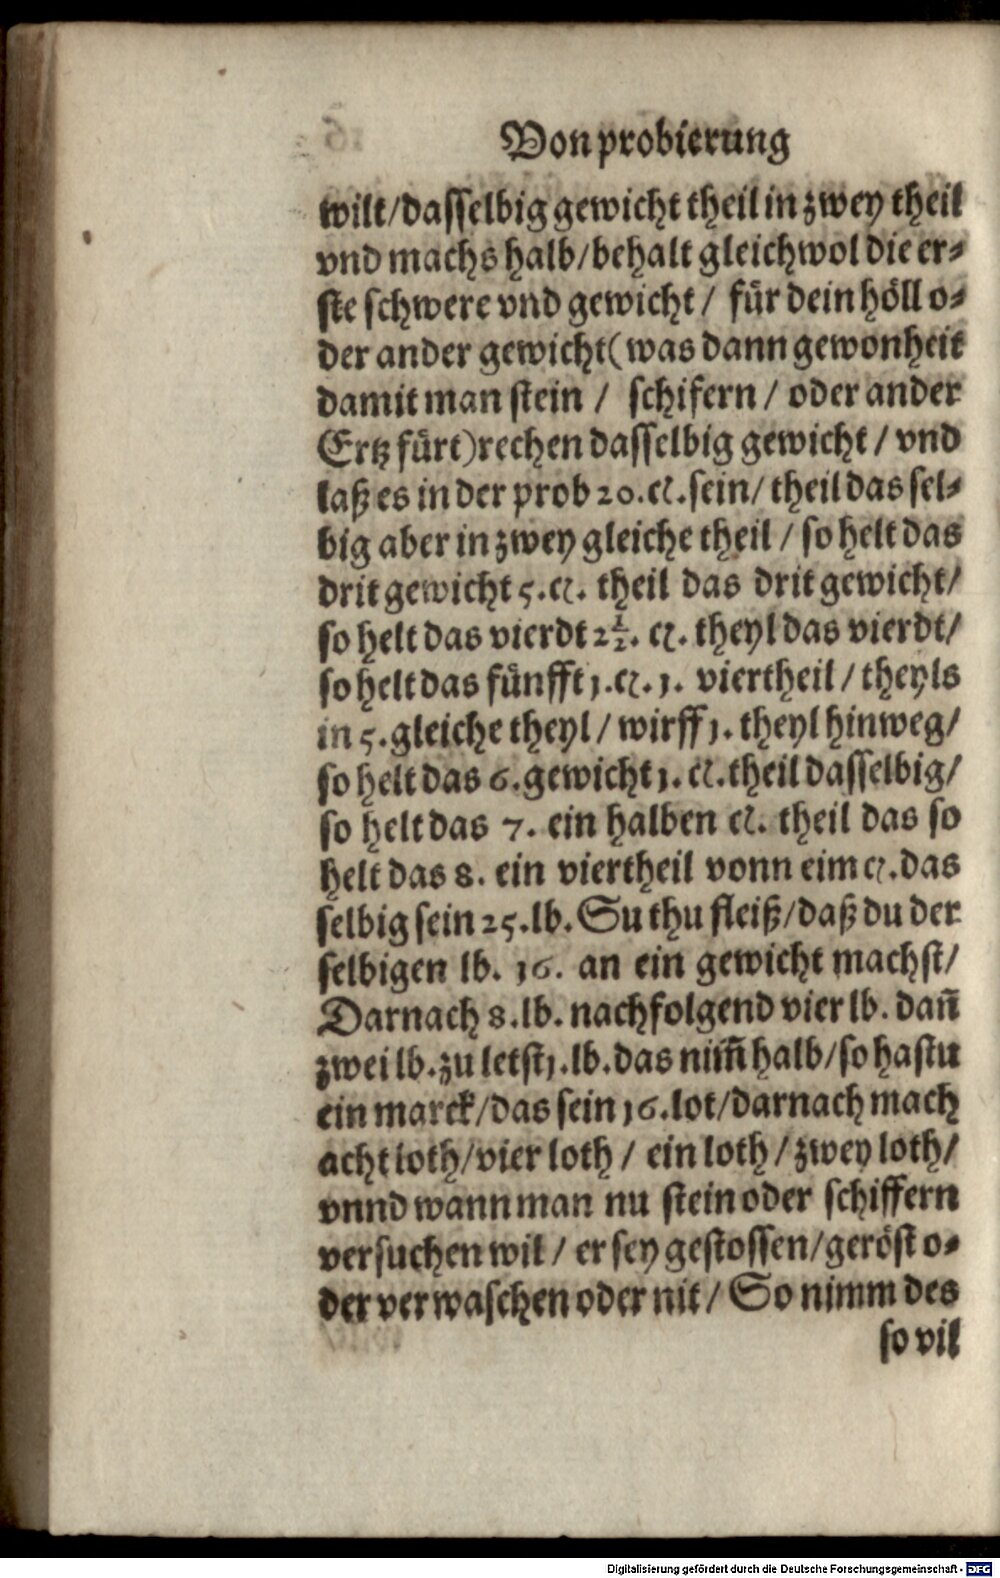 Von probierung
wilt/dasselbig gewicht theil in zwey theil
vnd machs halb/behalt gleichwol die er⸗
ste schwere vnd gewicht / für dein höll o⸗
der ander gewicht(was dann gewonheit
damit man stein / schifern / oder ander
Ertz fürt)rechen dasselbig gewicht / vnd
laß es in der prob 20.ct.sein/ theil das sel⸗
big aber in zwey gleiche theil / so helt das
drit gewicht 5.ct. theil das drit gewicht/
so helt das vierdt 2½. ct. theyl das vierdt/
so helt das fünfft 1.ct.1. viertheil / theyls
in 5.gleiche theyl / wirff 1. theyl hinweg/
so helt das 6.gewicht 1.ct.theil dasselbig/
so helt das 7. ein halben ct. theil das so
helt das 8. ein viertheil vonn eim ct.das
selbig sein 25.lb.Su thu fleiß/daß du der
selbigen lb. 16. an ein gewicht machst/
Darnach 8.lb.nachfolgend vier lb. dan̄
zwei lb.zu letst 1.lb.das nim̄ halb/so hastu
ein marck/das sein 16.lot/darnach mach
acht loth/vier loth / ein loth / zwey loth/
vnnd wann man nu stein oder schiffern
versuchen wil / er sey gestossen/geröst o⸗
der verwaschen oder nit / So nimm des
so vil
Digitalisierung gefördert durch die Deutsche Forschungsgemeinschaft - DFG